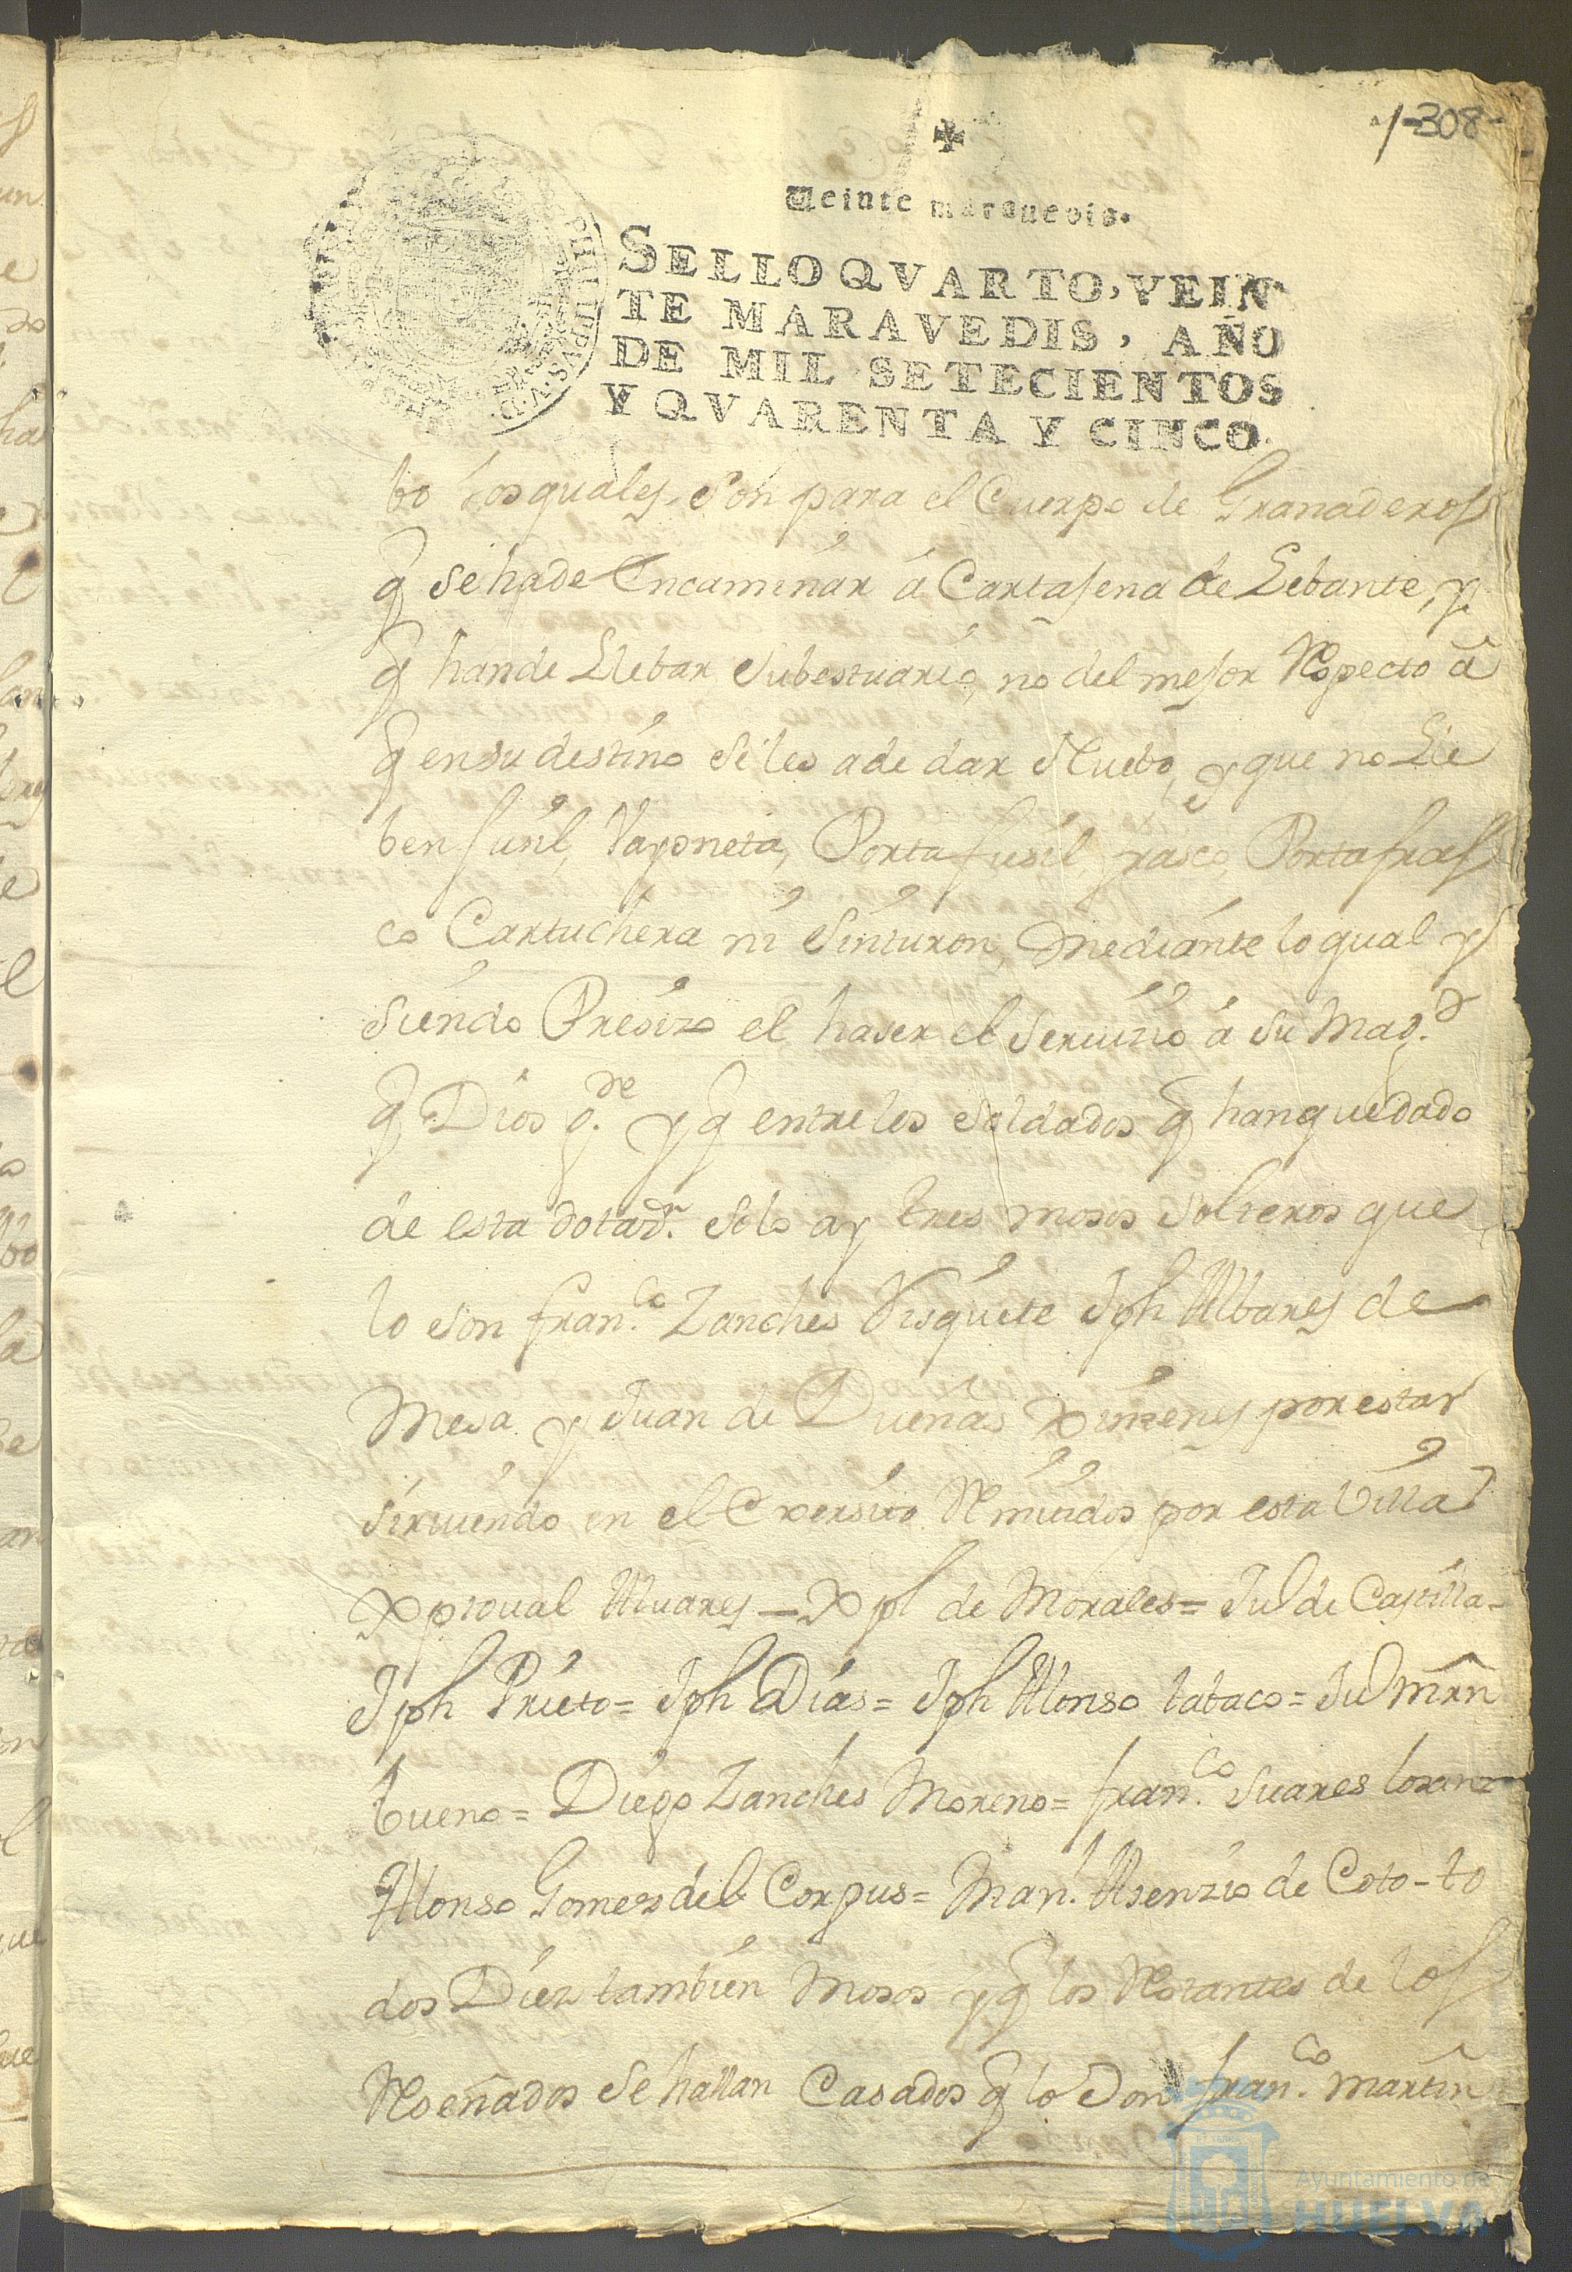 1-308-
Veinte maravedis.
SELLO QVARTO, VEIN
TE MARAVEDIS, AÑO
DE MIL SETECIENTOS
Y QVARENTA Y CINCO.
bo Los quales, son para el Cuerpo de Granaderos
q̃ se hade Encaminár á Cartajena de Lebante, y
q̃ hande Llebar subestuario, no del mejor Respecto á
q̃ en su destino se les a de dar Nuebo, y que no Lle
ben fusil, Vayoneta, Porta fusil, frasco, Porta fras
co Cartuchera ni Sinturon, Mediánte lo qual y
siendo Presizo el haser el servizio á su Mag.d
q̃ Dios g.de y q̃ entre los soldados q̃ han quedado
de esta dotaz.n solo ay tres mosos solteros que
lo son fran.co Zanches Visquete Jph Albares de
Mesa y Juan de Dueñas Ximenes por estar
sirviendo en el Exersito Remitidos por esta Villa
Xptoual Aluares = Xpl de Morales = Ju.o de Castilla =
Jph Prieto = Jph Días = Jph Alonso tabaco = Ju.o Mrn
bueno = Diego Zanches Moreno = fran.co Suares
Alonso Gomes del Corpus = Man.l Asenzio de Coto - to
dos Diez tambien Mosos y q̃ los Restantes de los
Reseñados se hallan Casados q̃ lo son fran.co Martin
Ayuntamiento de
HUELVA